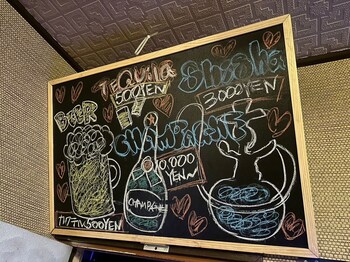 TEQUila
500YEN
Shisha
3000YEN
BEER
CHAMPAGNE
10,000
YEN~
CHAMPAGNE
カクテル500YEN